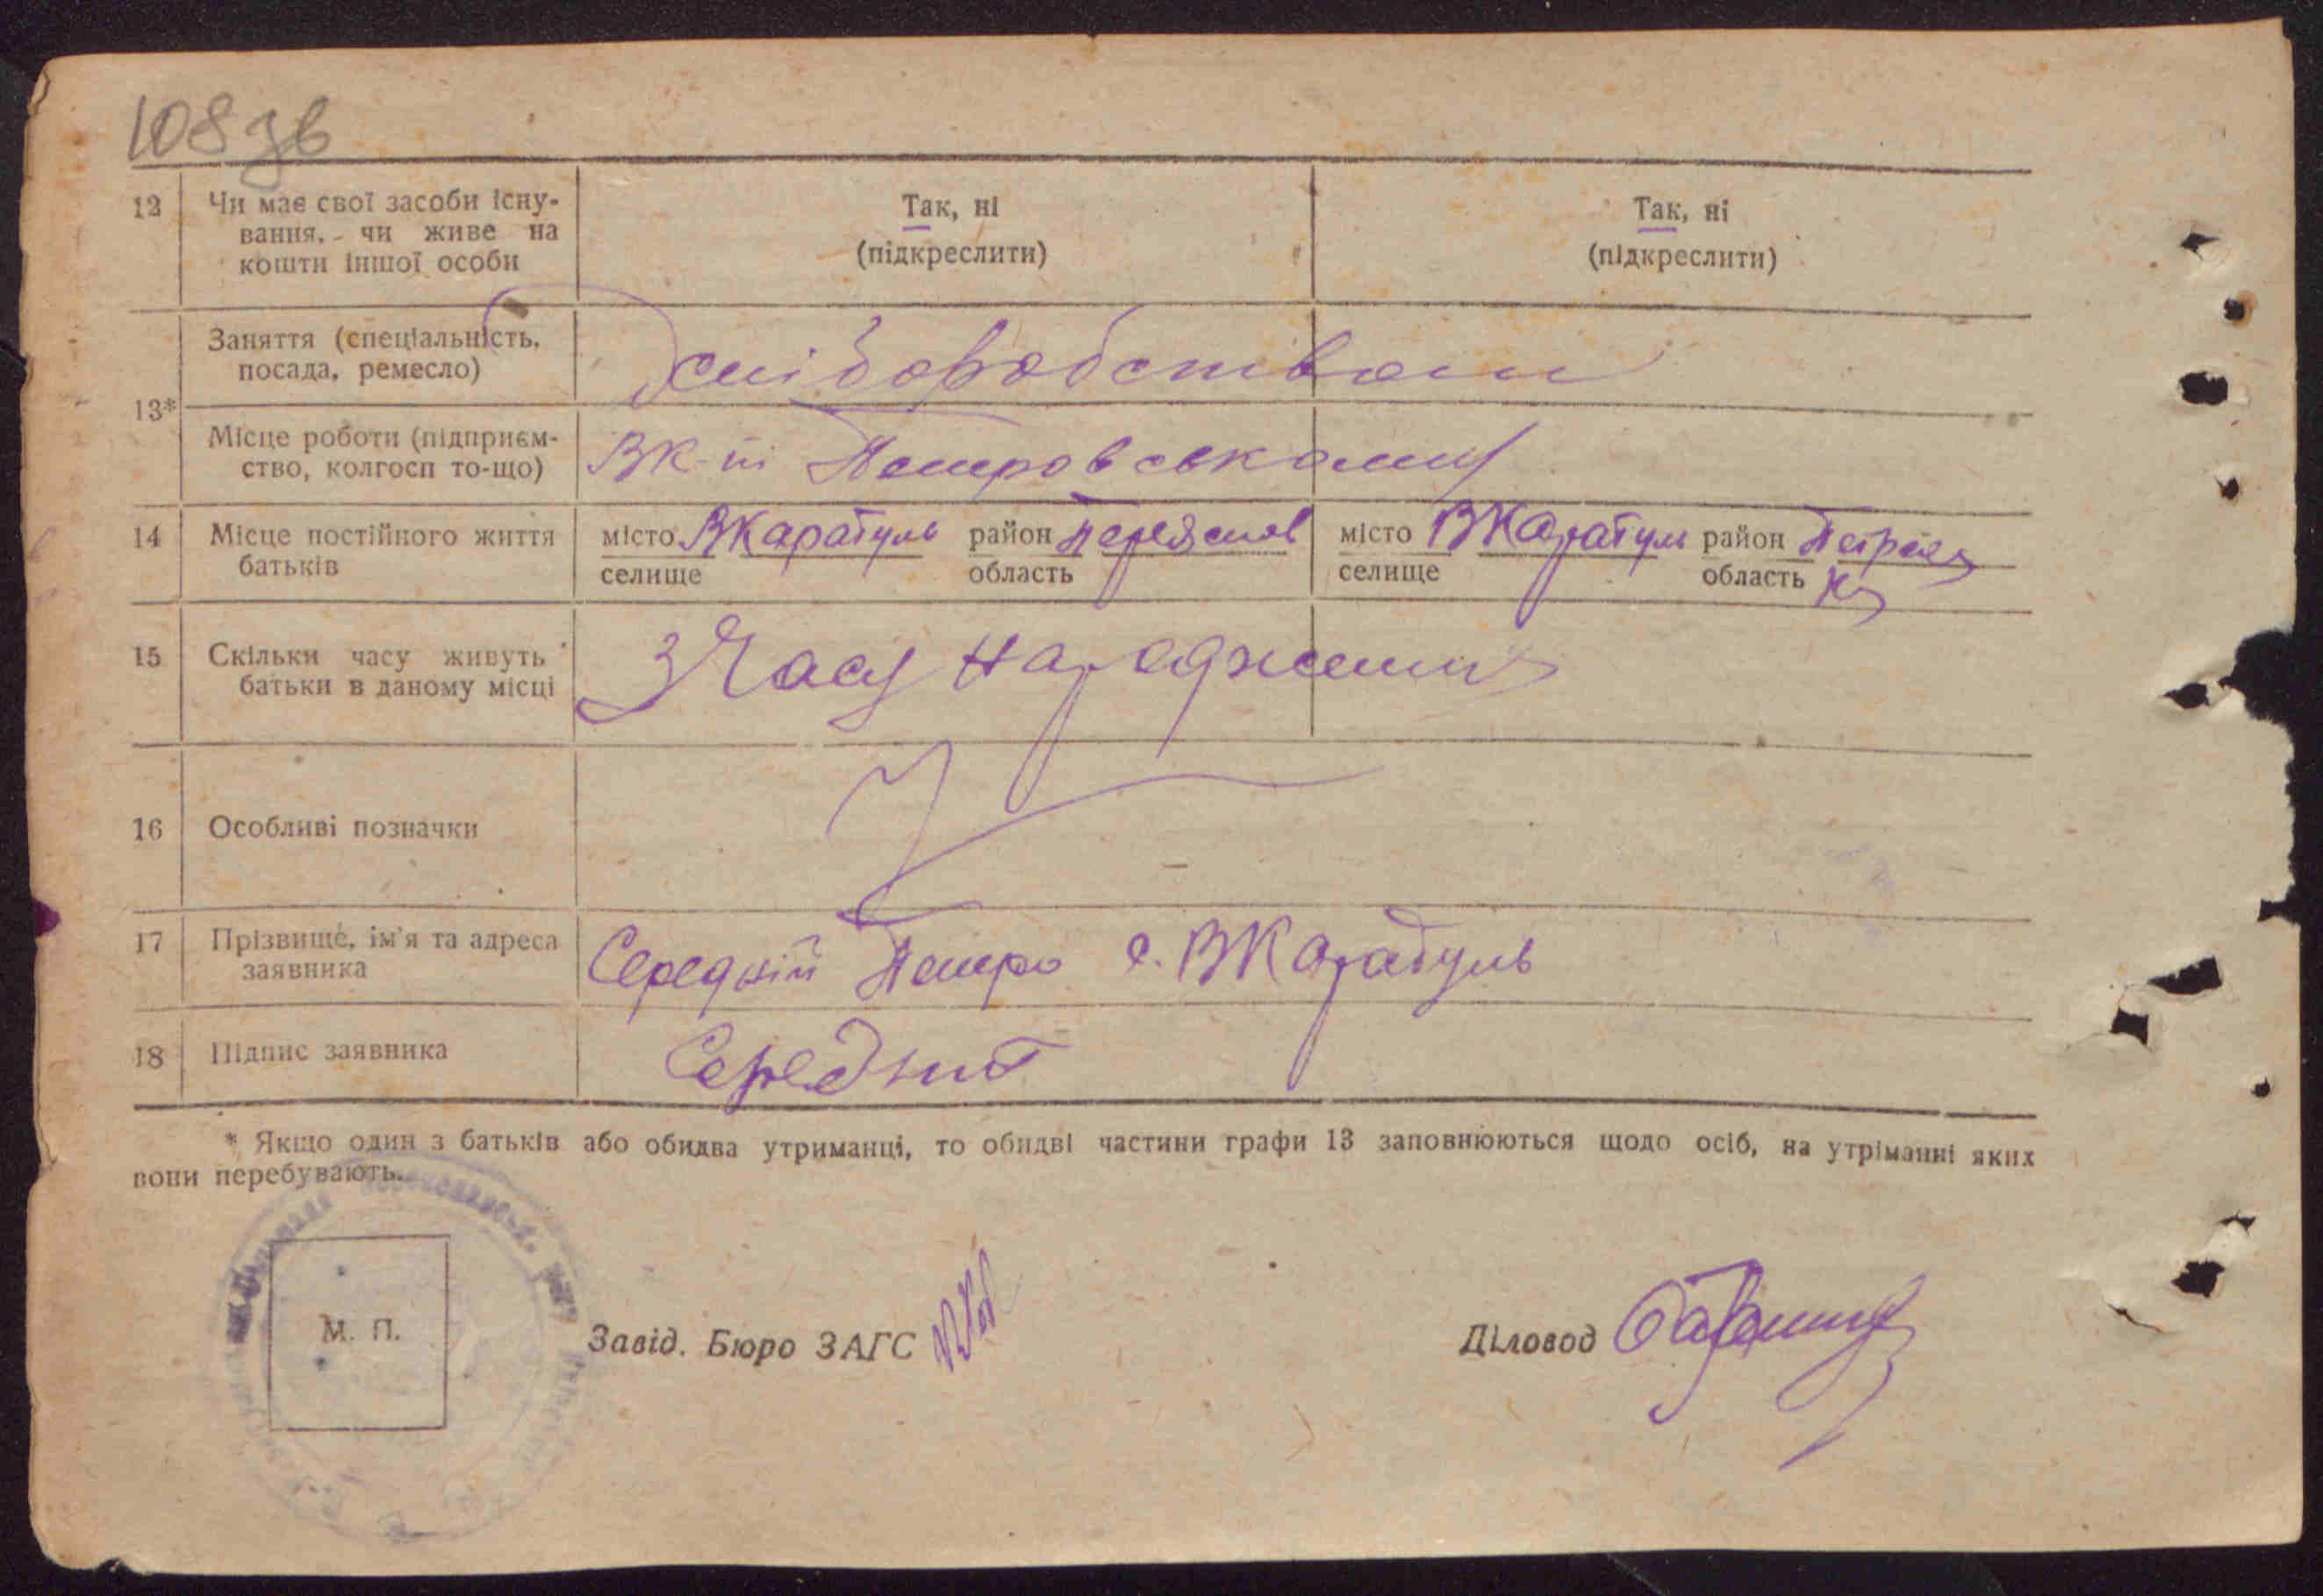 108 зв
12 Чи має свої засоби існу-
вання, - чи живе на
кошти іншої особи
Так, ні
(підкреслити)
Так, ні
(підкреслити)
13*
Заняття (спеціальність,
посада, ремесло)
Хліборобством
Місце роботи (підприєм-
ство, колгосп то-що)
Петровському
14 Місце постійного життя
батьків
місто ВКаратуль район Переяслов
селище область
місто ВКаратуль район
селище область
15 Скільки часу живуть
батьки в даному місці
З Часу народження
16 Особливі позначки
17 Прізвище, ім'я та адреса
заявника
Середній Петро с. ВКаратуль
18 Підпис заявника
Середний
* Якщо один з батьків або обидва утриманці, то обидві частини графи 13 заповнюються щодо осіб, на утріманні яких
вони перебувають.
М. П.
Завід. Бюро ЗАГС
Діловод